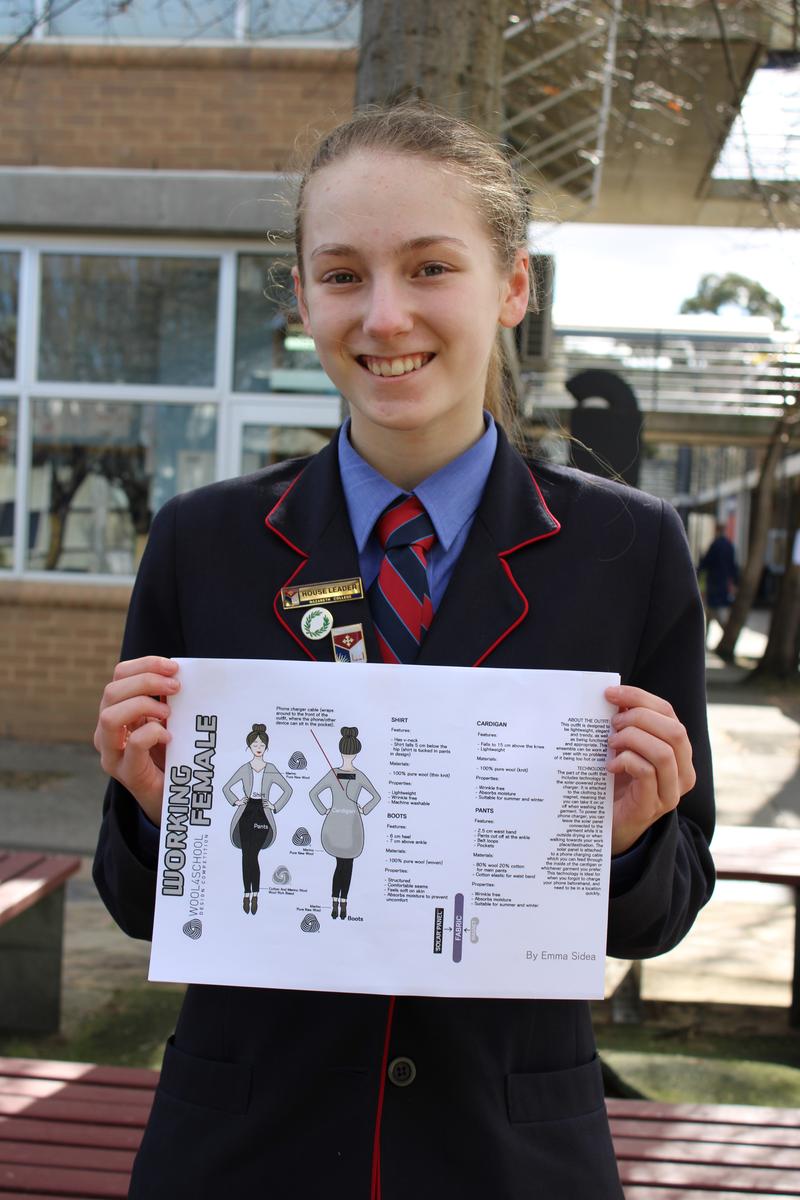 HOUSE LEADER
NAZARETH COLLEGE
WORKING
FEMALE
WOOL4SCHOOL
DESIGN COMPETITION
Phone charger cable (wraps
around to the front of the
outfit, where the phone/other
device can sit in the pocket).
Shirt
Pants
Cardigan
Boots
Merino
Pure New Wool
Merino
Pure New Wool
Cotton And Merino Wool
Wool Rich Blend
Merino
Pure New Wool
SHIRT
Features:
- Has v-neck
- Shirt falls 5 cm below the
hip (shirt is tucked in pants
in design)
Materials:
- 100% pure wool (thin knit)
Properties:
- Lightweight
- Wrinkle free
- Machine washable
BOOTS
Features:
- 6 cm heel
- 7 cm above ankle
Materials:
- 100% pure wool (woven)
Properties:
- Structured
- Comfortable seams
- Feels soft on skin
- Absorbs moisture to prevent
uncomfort
CARDIGAN
Features:
- Falls to 15 cm above the knee
- Lightweight
Materials:
- 100% pure wool (knit)
Properties:
- Wrinkle free
- Absorbs moisture
- Suitable for summer and winter
PANTS
Features:
- 2.5 cm waist band
- Pants cut off at the ankle
- Belt loops
- Pockets
Materials:
- 80% wool 20% cotton
for main pants
- Cotton elastic for waist band
Properties:
- Wrinkle free
- Absorbs moisture
- Suitable for summer and winter
SOLAR PANEL
FABRIC
ABOUT THE OUTFIT
This outfit is designed to
be lightweight, elegant
and trendy, as well
as being functional
and appropriate. This
ensemble can be worn all
year with no problems
of it being too hot or cold.
TECHNOLOGY
The part of the outfit that
includes technology is
the solar-powered phone
charger. It is attached
to the clothing by a
magnet, meaning that
you can take it on or
off when washing the
garment. To power the
phone charger, you can
leave the solar panel
connected to the
garment while it is
outside drying or when
walking towards your work
place/destination. The
solar panel is attached
to a phone charging cable
which you can feed through
the inside of the cardigan or
whichever garment you prefer.
This technology is ideal for
when you forgot to charge
your phone beforehand, and
need to be in a location
quickly.
By Emma Sidea